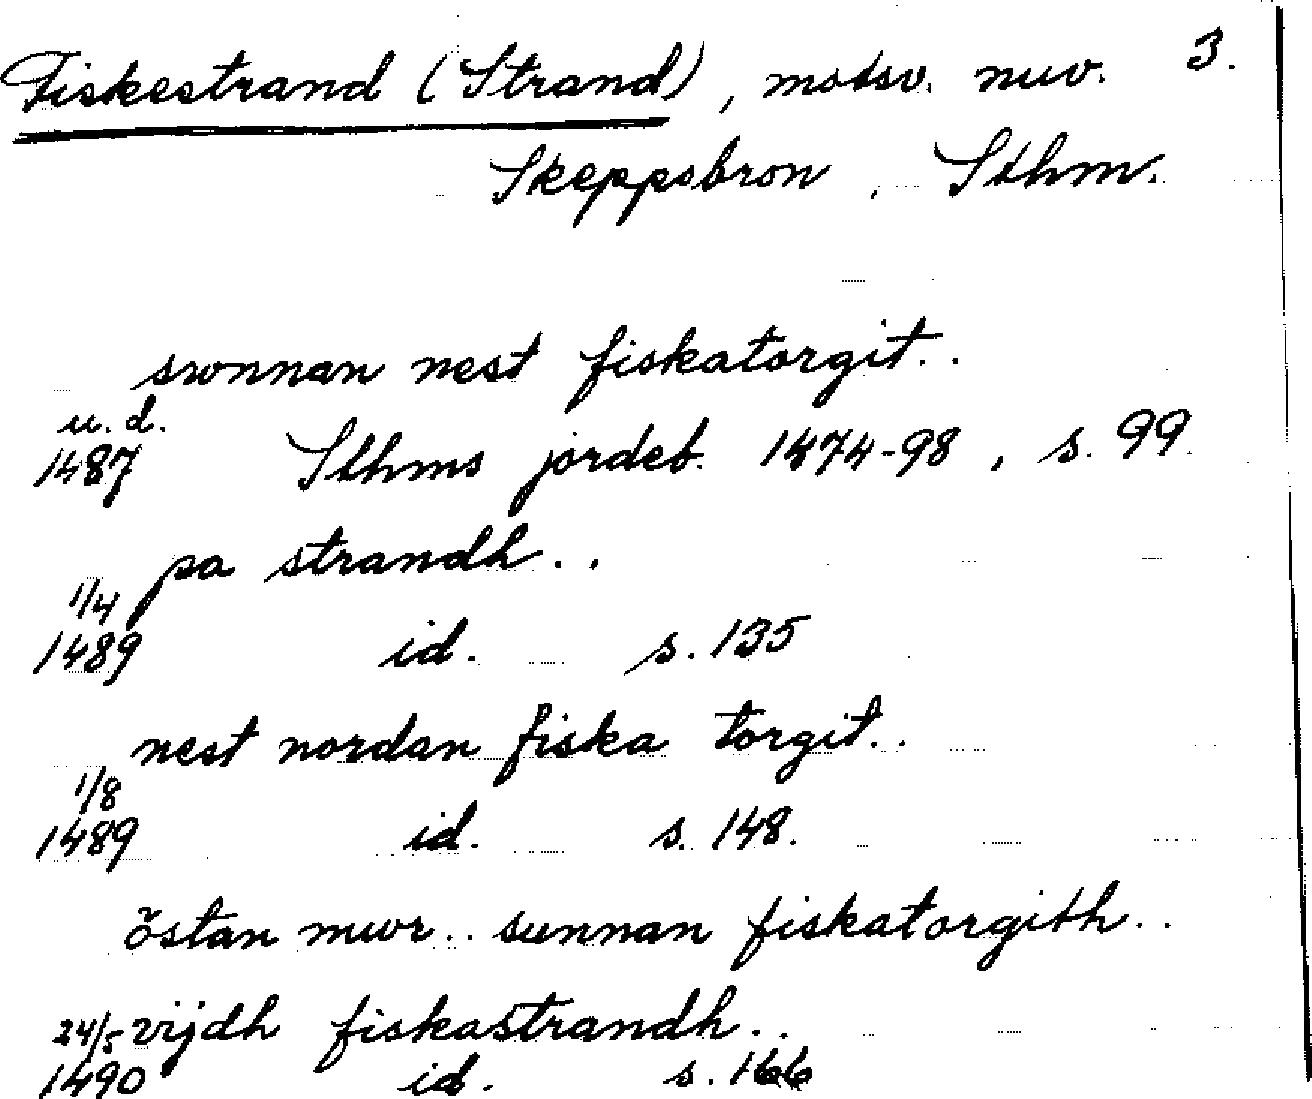 Fiskestrand (Strand), motsv. nuv. 3.
Skeppsbron, Sthm.
swnnan nest fiskatorgit..
u. d.
1487 Sthms jordeb. 1474-98, s. 99
pa strandh..
1/4
1489 id. s. 135
nest nordan fiska torgit..
1/8
1489 id. s. 148.
östan mwr.. sunnan fiskatorgith..
24/5 vijdh fiskastrandh..
1490 id. s. 166